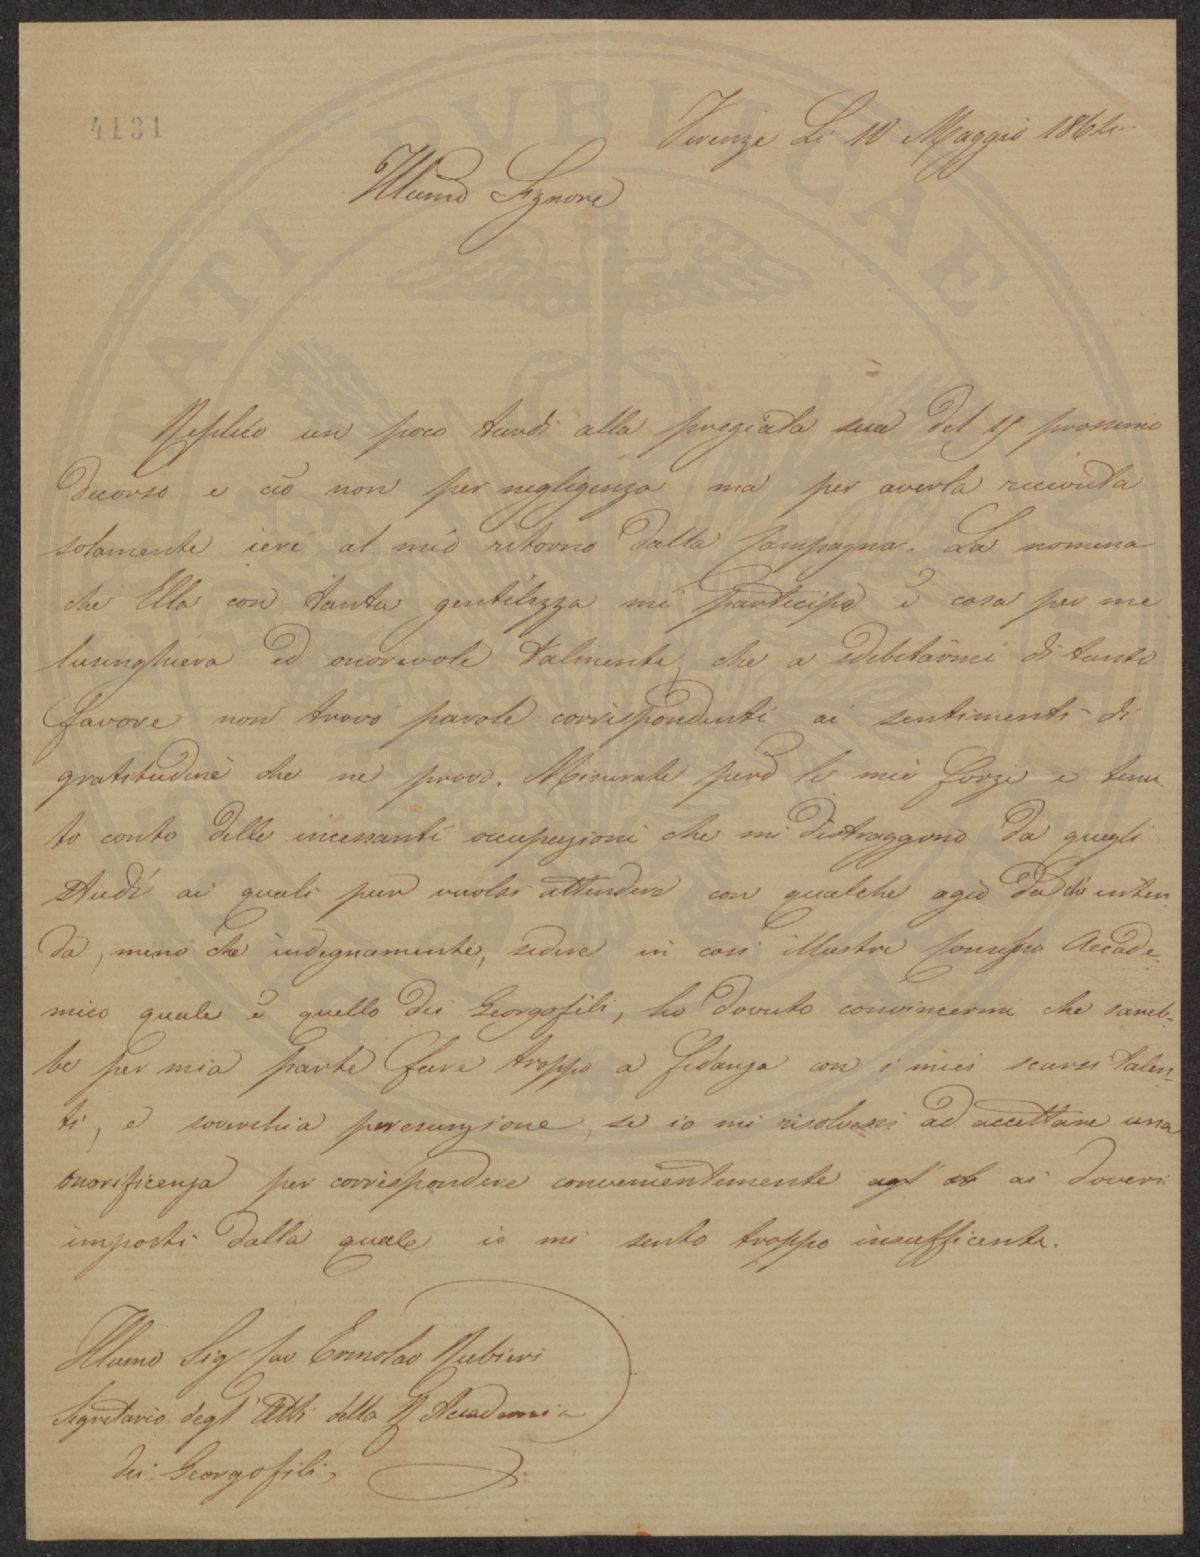 4131
Firenze Li 10 Maggio 186
Illumo Signore
Replico un poco tardi alla pregiata sua del 15 prossimo
decorso e ciò non per negligenza ma per averla ricevuta
solamente ieri al mio ritorno dalla Campagna. La nomina
che Ella con tanta gentilezza mi partecipa è cosa per me
lusinghiera ed onorevole talmente, che a sdebitarmi di tanto
favore non trovo parole corrispondenti ai sentimenti di
gratitudine che ne provo. Misurate però le mie forze e tenu-
to conto delle incessanti occupazioni che mi distraggono da quegli
studi ai quali pur vuolsi attendere con qualche agio da chi inten-
da, meno che indegnamente, sedere in così illustre Consesso Accade-
mico quale è quello dei Georgofili, ho dovuto convincermi che sareb-
be per mia parte fare troppo a fidanza con i miei scarsi talen-
ti, e soverchia presunzione, se io mi risolvessi ad accettare una
onorificenza per corrispondere convenientemente ai doveri
imposti dalla quale io mi sento troppo insufficente.
Illumo Sig Cav Ermolao Rubieri
Segretario degl' Atti della R Accademia
dei Georgofili
TATI PVBLICAE